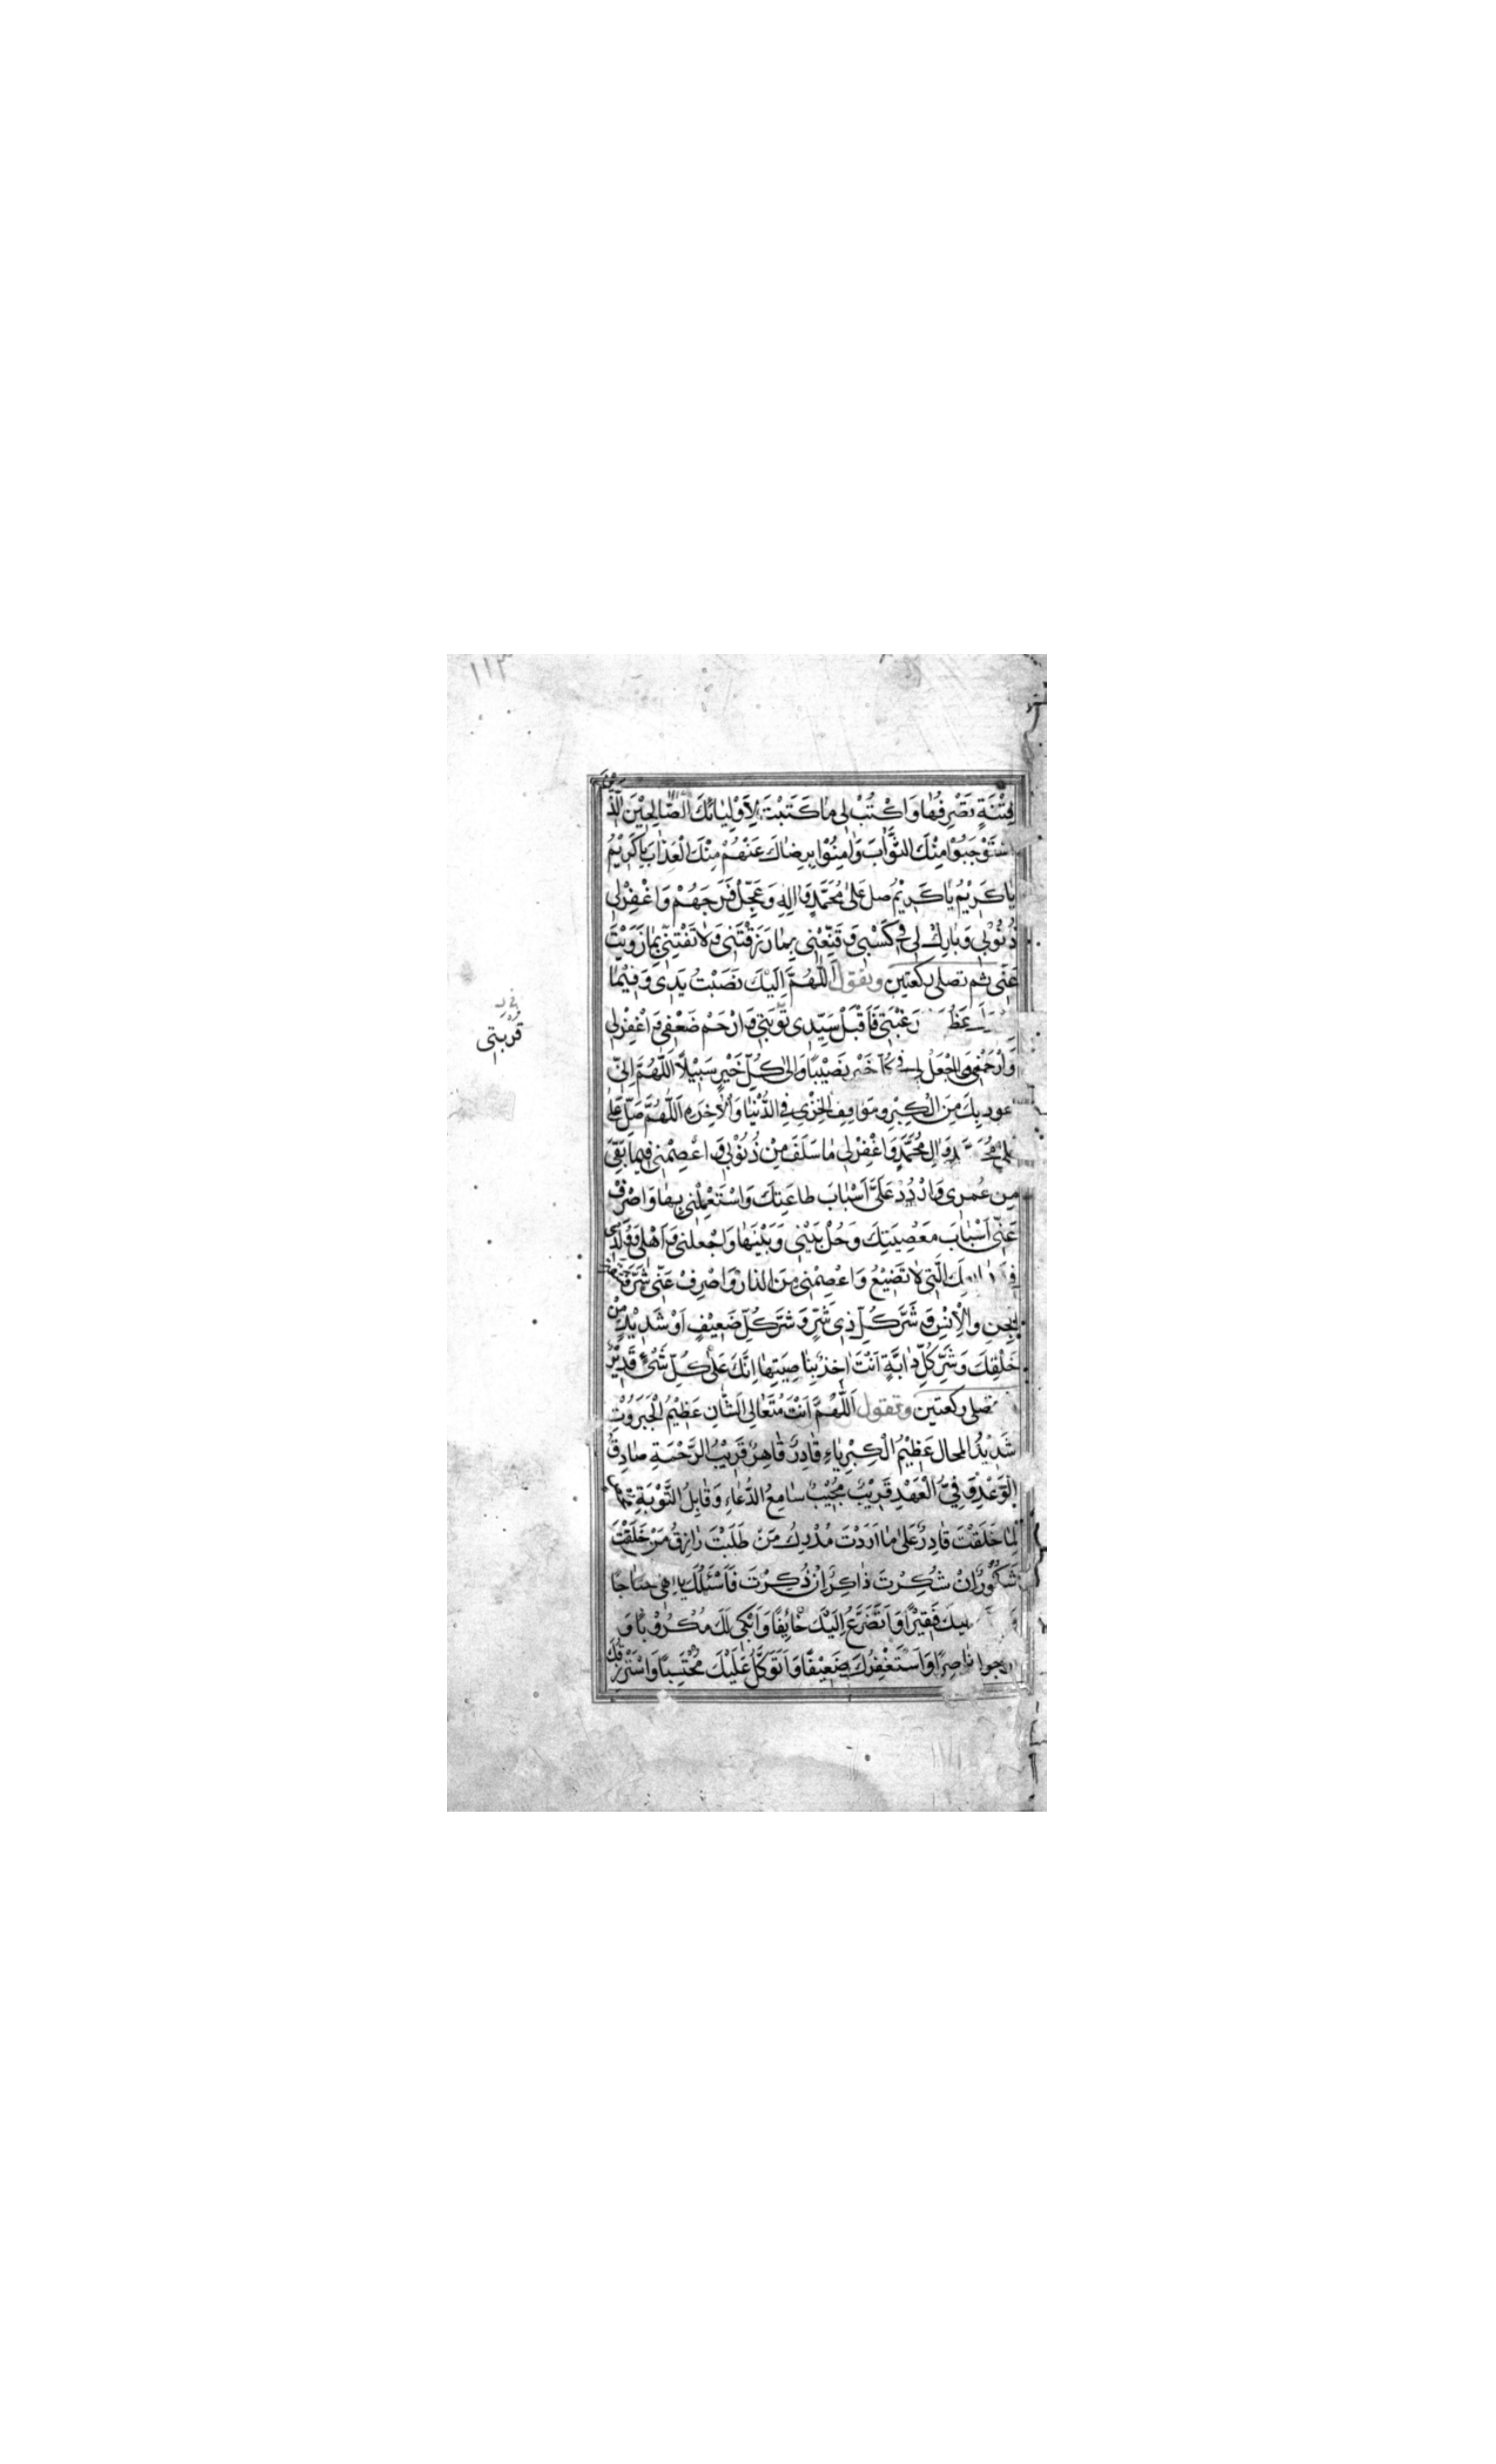 ١١٣
فِتْنَةٍ تَصْرِفُهَا وَاكْتُبْ لِى مَا كَتَبْتَ لِاَوْلِيَائِكَ الصَّالِحِيْنَ الَّذ
اسْتَوْجَبُوْا مِنْكَ الثَّوَابَ وَاٰمِنُوْا بِرِضَاكَ عَنْهُمْ مِنْكَ الْعَذَابَ يَا كَرِيْمُ
يَا كَرِيْمُ يَا كَرِيْمُ صل عَلىٰ مُحَمَّدٍ وَاٰلِهِ وَعَجِّلْ فَرَجَهُمْ وَاغْفِرْلِى
ذُنُوْبِى وَبَارِكْ لِى فِى كَسْبِى وَقَنِّعْنِى بِمَا رَزَقْتَنِى وَلَا تَفْتِنِّى بِمَا زَوَيْتَ
عَنِّى ثم تصلى ركعتين وتقول اَللّٰهُمَّ اِلَيْكَ نَصَبْتُ يَدِى وَفِيْمَا
عَظُ رَغْبَتِى فَاقْبَلْ سَيِّدِى تَوْبَتِى وَارْحَمْ ضَعْفِى وَاغْفِرْلِى
وَارْحَمْنِى وَاجْعَلْ لِى فِى كُلِّ خَيْرٍ نَصِيْبًا وَاِلىٰ كُلِّ خَيْرٍ سَبِيْلًا اَللّٰهُمَّ اِنِّى
اعوذ بِكَ مِنَ الْكِبْرِ وَمَوَاقِفِ الْخِزْىِ فِى الدُّنْيَا وَالْاٰخِرَةِ اَللّٰهُمَّ صَلِّ عَلىٰ
عَلىٰ مُحَمَّدٍ وَاٰلِ مُحَمَّدٍ وَاغْفِرْلِى مَا سَلَفَ مِنْ ذُنُوْبِى وَاعْصِمْنِى فِيمَا بَقِىَ
مِن عُمرِى وَارْدُدْ عَلَىَّ اَسْبَابَ طَاعَتِكَ وَاسْتَعْمِلْنِى بِهَا وَاصْرِفْ
عَنِّى اَسْبَابَ مَعْصِيَتِكَ وَحُلْ بَيْنِى وَبَيْنَهَا وَاجْعَلْنِى وَاَهْلِى وَوُلْدِى
فِى الَّتِى لَا تَضِيْعُ وَاعْصِمْنِى مِنَ النَّارِ وَاصْرِفْ عَنِّى شَرَّ فَسَقَةِ
الْجِنِّ وَالْاِنْسِ وَشَرَّ كُلِّ ذِى شَرٍّ وَشَرَّ كُلِّ ضَعِيْفٍ اَوْ شَدِيْدٍ مِنْ
خَلْقِكَ وَشَرِّ كُلِّ دَابَّةٍ اَنْتَ اٰخِذٌ بِنَاصِيَتِهَا اِنَّكَ عَلىٰ كُلِّ شَىْءٍ قَدِيْرٌ
تصلى ركعتين وتقول اَللّٰهُمَّ اَنْتَ مُتَعَالِى الشَّانِ عَظِيْمُ الْجَبَرُوْتِ
شَدِيْدُ المحال عَظِيْمُ الْكِبْرِيَاءِ قَادِرٌ قَاهِرٌ قَرِيْبُ الرَّحْمَةِ صَادِقُ
الْوَعْدِ وَفِىُّ الْعَهْدِ قَرِيْبٌ مُجِيْبٌ سَامِعُ الدُّعَاءِ وَقَابِلُ التَّوْبَةِ
لِمَا خَلَقْتَ قَادِرٌ عَلىٰ مَا اَرَدْتَ مُدْرِكُ مَنْ طَلَبْتَ رَازِقُ مَنْ خَلَقْتَ
شَكُوْرٌ اِنْ شُكِرْتَ ذَاكِرٌ اِنْ ذُكِرْتَ فَاَسْئَلُكَ يَا اِلٰهِى محتاجًا
وَ اليكَ فَقِيْرًا وَاَتَضَرَّعُ اِلَيْكَ خَائِفًا وَاَبْكِى اِلَيْكَ مَكْرُوْبًا وَ
ارجوا نَاصِرًا وَاَسْتَغْفِرُكَ ضَعِيْفًا وَاَتَوَكَّلُ عَلَيْكَ مُحْتَسِبًا وَاَسْتَرْزِقُكَ
قربتى